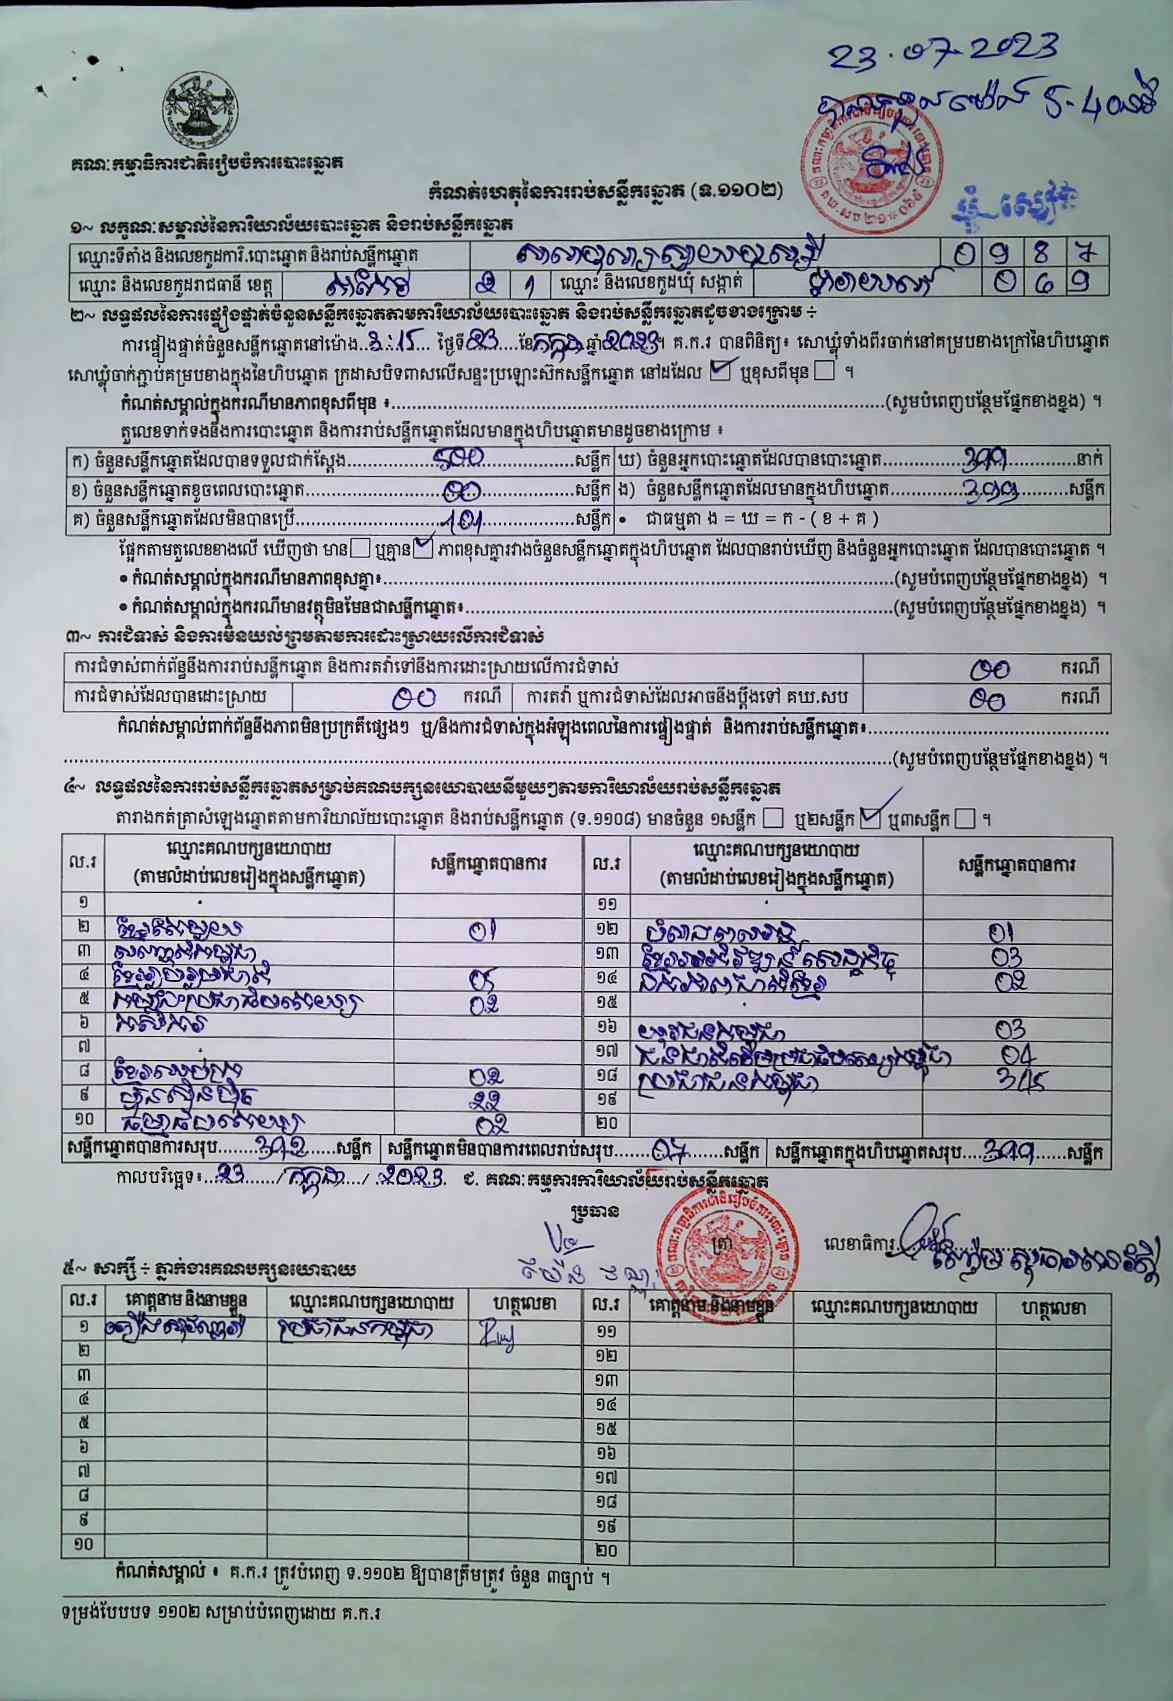 23.07.2023
5-40នាទី
គណៈកម្មាធិការជាតិរៀបចំការបោះឆ្នោត
កំណត់ហេតុនៃការរាប់សន្លឹកឆ្នោត (ទ.១១០២)
១~ លក្ខណៈសម្គាល់នៃការិយាល័យបោះឆ្នោត និងរាប់សន្លឹកឆ្នោត
ឈ្មោះទីតាំង និងលេខកូដការិ.បោះឆ្នោត និងរាប់សន្លឹកឆ្នោត 0 9 8 7
ឈ្មោះ និងលេខកូដរាជធានី ខេត្ត តាកែវ 2 1 ឈ្មោះ និងលេខកូដឃុំ សង្កាត់ 0 6 9
២~ លទ្ធផលនៃការផ្ទៀងផ្ទាត់ចំនួនសន្លឹកឆ្នោតតាមការិយាល័យបោះឆ្នោត និងរាប់សន្លឹកឆ្នោតដូចខាងក្រោម ÷
ការផ្ទៀងផ្ទាត់ចំនួនសន្លឹកឆ្នោតនៅម៉ោង..3:15... ថ្ងៃទី23....ខែកក្កដាឆ្នាំ2023។ គ.ក.រ បានពិនិត្យ៖ សោឃ្លុំទាំងពីរចាក់នៅគម្របខាងក្រៅនៃហិបឆ្នោត
សោឃ្លុំចាក់ភ្ជាប់គម្របខាងក្នុងនៃហិបឆ្នោត ក្រដាសបិទពាសលើសន្ទះប្រឡោះស៊កសន្លឹកឆ្នោត នៅដដែល ☑ ឬខុសពីមុន ☐ ។
កំណត់សម្គាល់ក្នុងករណីមានភាពខុសពីមុន ៖..........(សូមបំពេញបន្ថែមផ្នែកខាងខ្នង) ។
តួលេខទាក់ទងនឹងការបោះឆ្នោត និងការរាប់សន្លឹកឆ្នោតដែលមានក្នុងហិបឆ្នោតមានដូចខាងក្រោម ៖
ក) ចំនួនសន្លឹកឆ្នោតដែលបានទទួលជាក់ស្តែង..........500..........សន្លឹក ឃ) ចំនួនអ្នកបោះឆ្នោតដែលបានបោះឆ្នោត..........399..........នាក់
ខ) ចំនួនសន្លឹកឆ្នោតខូចពេលបោះឆ្នោត..........00..........សន្លឹក ង) ចំនួនសន្លឹកឆ្នោតដែលមានក្នុងហិបឆ្នោត..........399..........សន្លឹក
គ) ចំនួនសន្លឹកឆ្នោតដែលមិនបានប្រើ..........101..........សន្លឹក • ជាធម្មតា ង = ឃ = ក - ( ខ + គ )
ផ្អែកតាមតួលេខខាងលើ ឃើញថា មាន☐ ឬគ្មាន☑ ភាពខុសគ្នារវាងចំនួនសន្លឹកឆ្នោតក្នុងហិបឆ្នោត ដែលបានរាប់ឃើញ និងចំនួនអ្នកបោះឆ្នោត ដែលបានបោះឆ្នោត ។
• កំណត់សម្គាល់ក្នុងករណីមានភាពខុសគ្នា៖..........(សូមបំពេញបន្ថែមផ្នែកខាងខ្នង) ។
• កំណត់សម្គាល់ក្នុងករណីមានវត្ថុមិនមែនជាសន្លឹកឆ្នោត៖..........(សូមបំពេញបន្ថែមផ្នែកខាងខ្នង) ។
៣~ ការជំទាស់ និងការមិនយល់ព្រមតាមការដោះស្រាយលើការជំទាស់
ការជំទាស់ពាក់ព័ន្ធនឹងការរាប់សន្លឹកឆ្នោត និងការតវ៉ាទៅនឹងការដោះស្រាយលើការជំទាស់ 00 ករណី
ការជំទាស់ដែលបានដោះស្រាយ 00 ករណី ការតវ៉ា ឬការជំទាស់ដែលអាចនឹងប្តឹងទៅ គឃ.សប 00 ករណី
កំណត់សម្គាល់ពាក់ព័ន្ធនឹងភាពមិនប្រក្រតីផ្សេងៗ ឬ/និងការជំទាស់ក្នុងអំឡុងពេលនៃការផ្ទៀងផ្ទាត់ និងការរាប់សន្លឹកឆ្នោត៖..........
..........(សូមបំពេញបន្ថែមផ្នែកខាងខ្នង) ។
៤~ លទ្ធផលនៃការរាប់សន្លឹកឆ្នោតសម្រាប់គណបក្សនយោបាយនីមួយៗតាមការិយាល័យរាប់សន្លឹកឆ្នោត
តារាងកត់ត្រាសំឡេងឆ្នោតតាមការិយាល័យបោះឆ្នោត និងរាប់សន្លឹកឆ្នោត (ទ.១១០៨) មានចំនួន ១សន្លឹក ☐ ឬ២សន្លឹក ☑ ឬ៣សន្លឹក ☐ ។
ល.រ ឈ្មោះគណបក្សនយោបាយ (តាមលំដាប់លេខរៀងក្នុងសន្លឹកឆ្នោត) សន្លឹកឆ្នោតបានការ ល.រ ឈ្មោះគណបក្សនយោបាយ (តាមលំដាប់លេខរៀងក្នុងសន្លឹកឆ្នោត) សន្លឹកឆ្នោតបានការ
១ ១១
២ 01 ១២ 01
៣ ១៣ ខ្មែរអភិវឌ្ឍន៍សេដ្ឋកិច្ច 03
៤ ខ្មែររួបរួមជាតិ 05 ១៤ ឯកភាពជាតិខ្មែរ 02
៥ កម្លាំងប្រជាធិបតេយ្យ 02 ១៥
៦ ១៦ យុវជនកម្ពុជា 03
៧ ១៧ ជនជាតិដើមប្រជាធិបតេយ្យកម្ពុជា 04
៨ 02 ១៨ ប្រជាជនកម្ពុជា 345
៩ ហ្វ៊ុនស៊ិនប៉ិច 22 ១៩
១០ ធម្មាធិបតេយ្យ 02 ២០
សន្លឹកឆ្នោតបានការសរុប......392......សន្លឹក សន្លឹកឆ្នោតមិនបានការពេលរាប់សរុប......07......សន្លឹក សន្លឹកឆ្នោតក្នុងហិបឆ្នោតសរុប......399......សន្លឹក
កាលបរិច្ឆេទ៖...23....../កក្កដា.../ 2023. ជ. គណៈកម្មការការិយាល័យរាប់សន្លឹកឆ្នោត
ប្រធាន ត្រា លេខាធិការ
៥~ សាក្សី ÷ ភ្នាក់ងារគណបក្សនយោបាយ
ល.រ គោត្តនាម និងនាមខ្លួន ឈ្មោះគណបក្សនយោបាយ ហត្ថលេខា ល.រ គោត្តនាម និងនាមខ្លួន ឈ្មោះគណបក្សនយោបាយ ហត្ថលេខា
១ ប្រជាជនកម្ពុជា ១១
២ ១២
៣ ១៣
៤ ១៤
៥ ១៥
៦ ១៦
៧ ១៧
៨ ១៨
៩ ១៩
១០ ២០
កំណត់សម្គាល់ ៖ គ.ក.រ ត្រូវបំពេញ ទ.១១០២ ឱ្យបានត្រឹមត្រូវ ចំនួន ៣ច្បាប់ ។
ទម្រង់បែបបទ ១១០២ សម្រាប់បំពេញដោយ គ.ក.រ